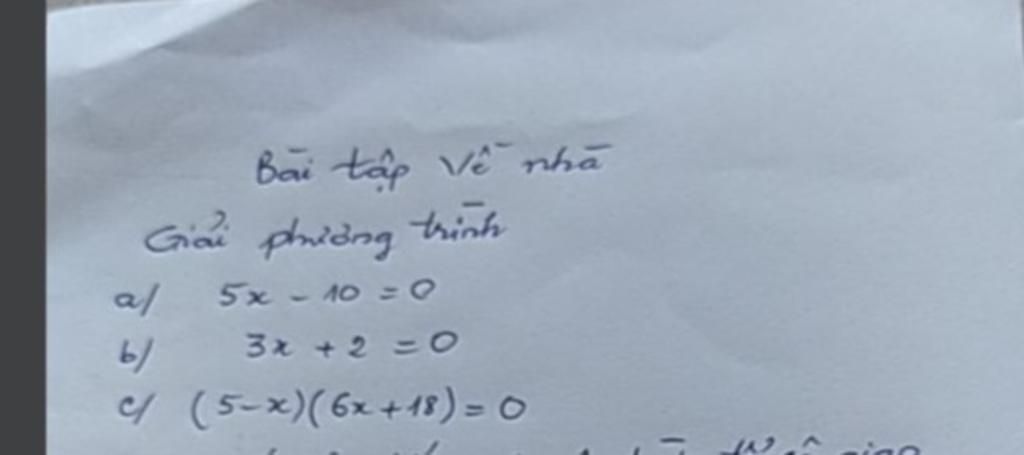 Bài tập về nhà
Giải phương trình
a/ 5x - 10 = 0
b/ 3x + 2 = 0
c/ (5-x)(6x+18) = 0